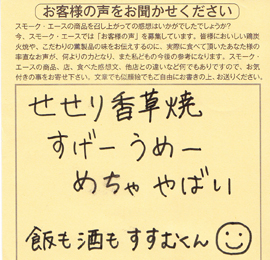 お客様の声をお聞かせください
スモーク・エースの商品を召し上がっての感想はいかがでしたでしょうか?
今、スモーク・エースでは「お客様の声」を募集しています。皆様においしい鶏炭
火焼や、こだわりの薫製品の味をお伝えするのに、実際に食べて頂いたあなた様の
率直なお声が、何より力となり、また私どもの今後の参考になります。スモーク・
エースの商品、店、食べた感想文、他店との違いなど何でもありですので、お気
付きの事をお寄せ下さい。文章でも伝顔絵でもご自由にお書きの上、お送りください。
せせり香草焼
すげーうめー
めちゃやばい
飯も酒もすすむくん